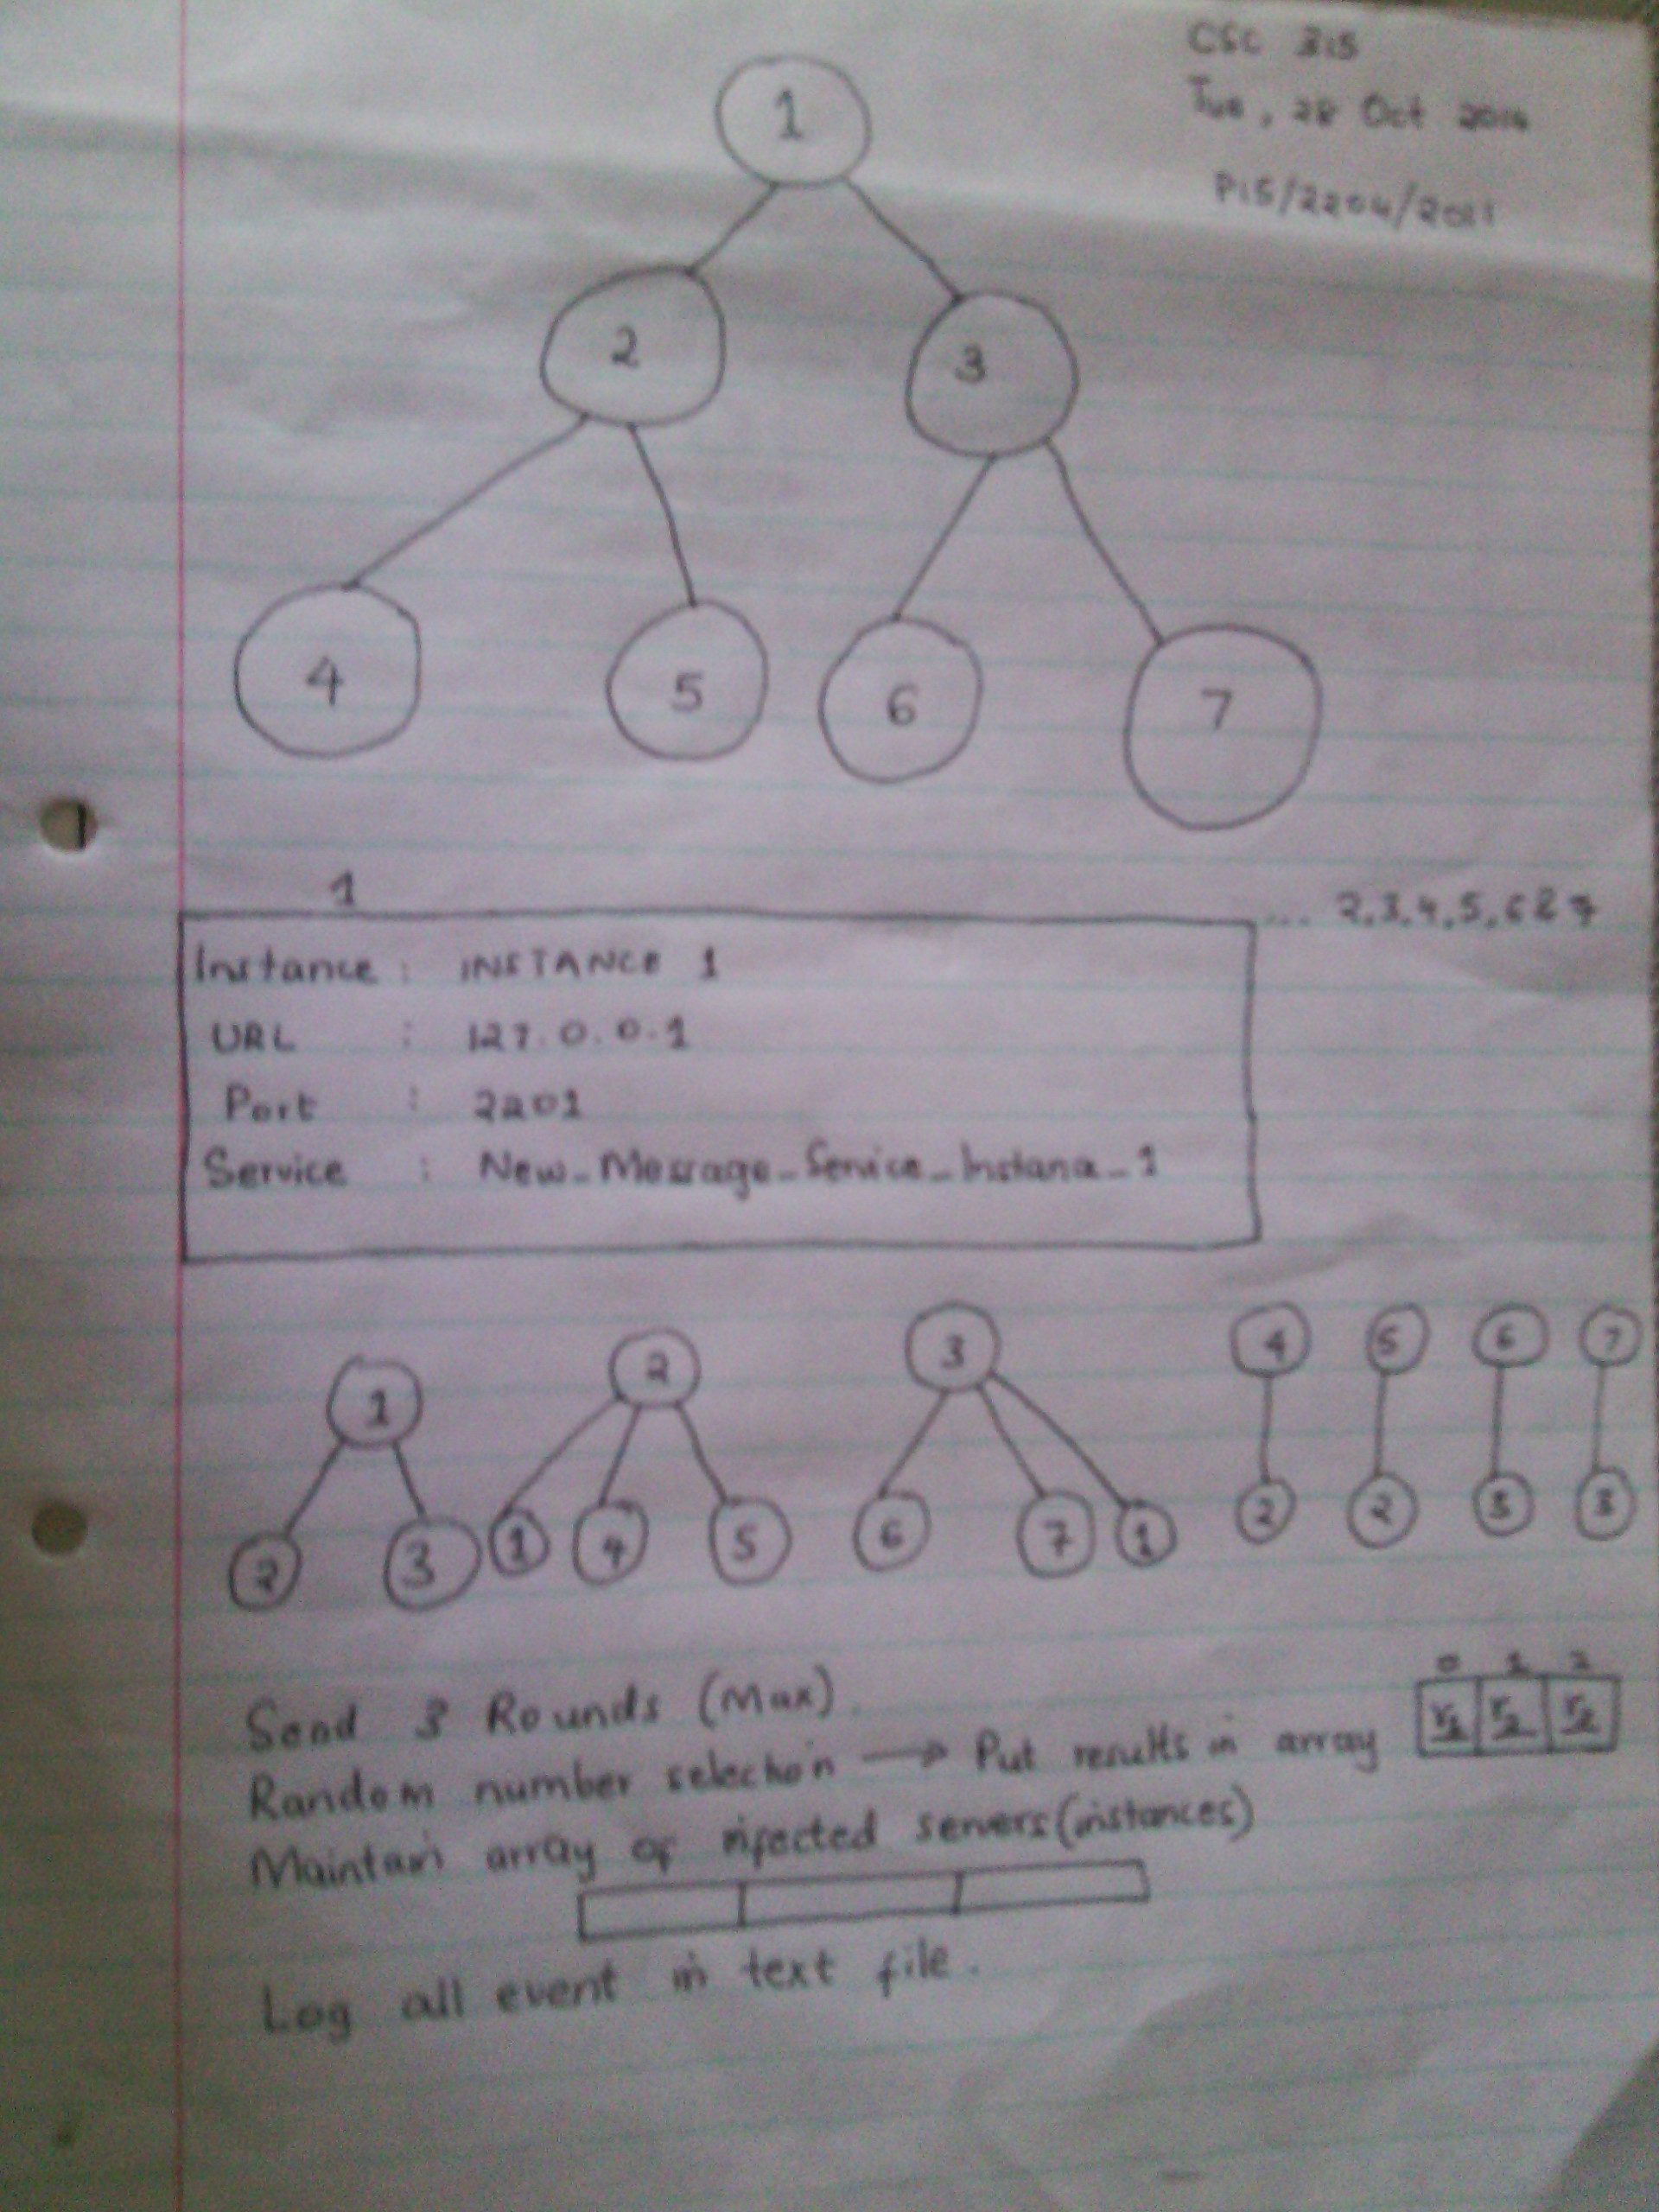 CSC 315
Tue, 28 Oct 2014
P15/2204/2011
1
2
3
4
5
6
7
1
... 2,3,4,5,6 & 7
Instance : INSTANCE 1
URL : 127.0.0.1
Port : 2201
Service : New_Message_Service_Instance_1
1
2
3
4
5
6
7
2
3
1
4
5
6
7
1
2
2
3
3
Send 3 Rounds (Max).
0 1 2
Random number selection → Put results in array
r1 r2 r2
Maintain array of infected servers (instances)
Log all event in text file.